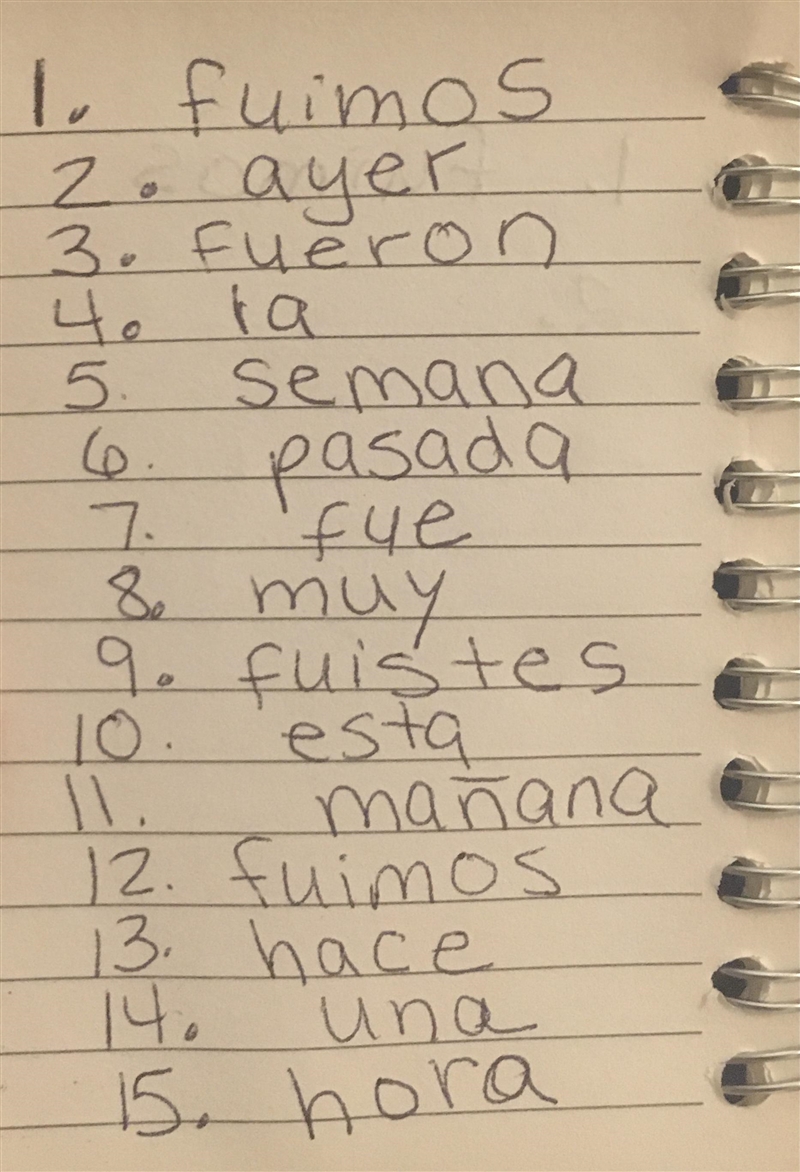 1. fuimos
2. ayer
3. fueron
4. la
5. semana
6. pasada
7. fue
8. muy
9. fuistes
10. esta
11. mañana
12. fuimos
13. hace
14. una
15. hora